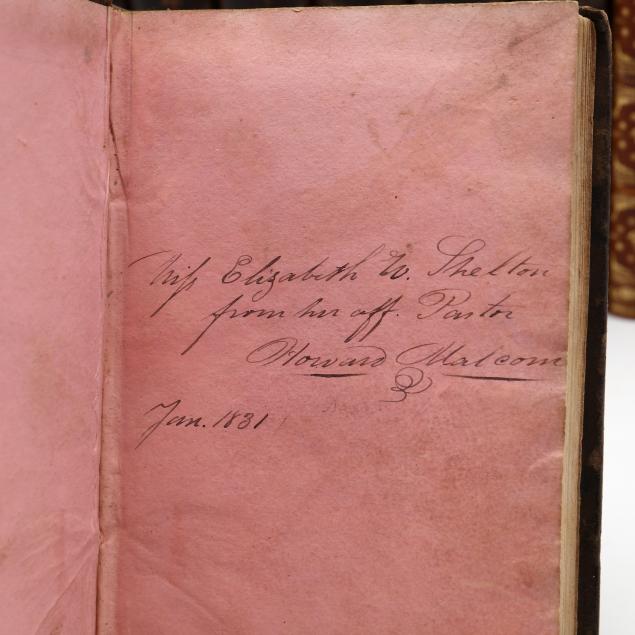 Miss Elizabeth W. Shelton
from her aff. Pastor
Howard Malcom
Jan. 1831